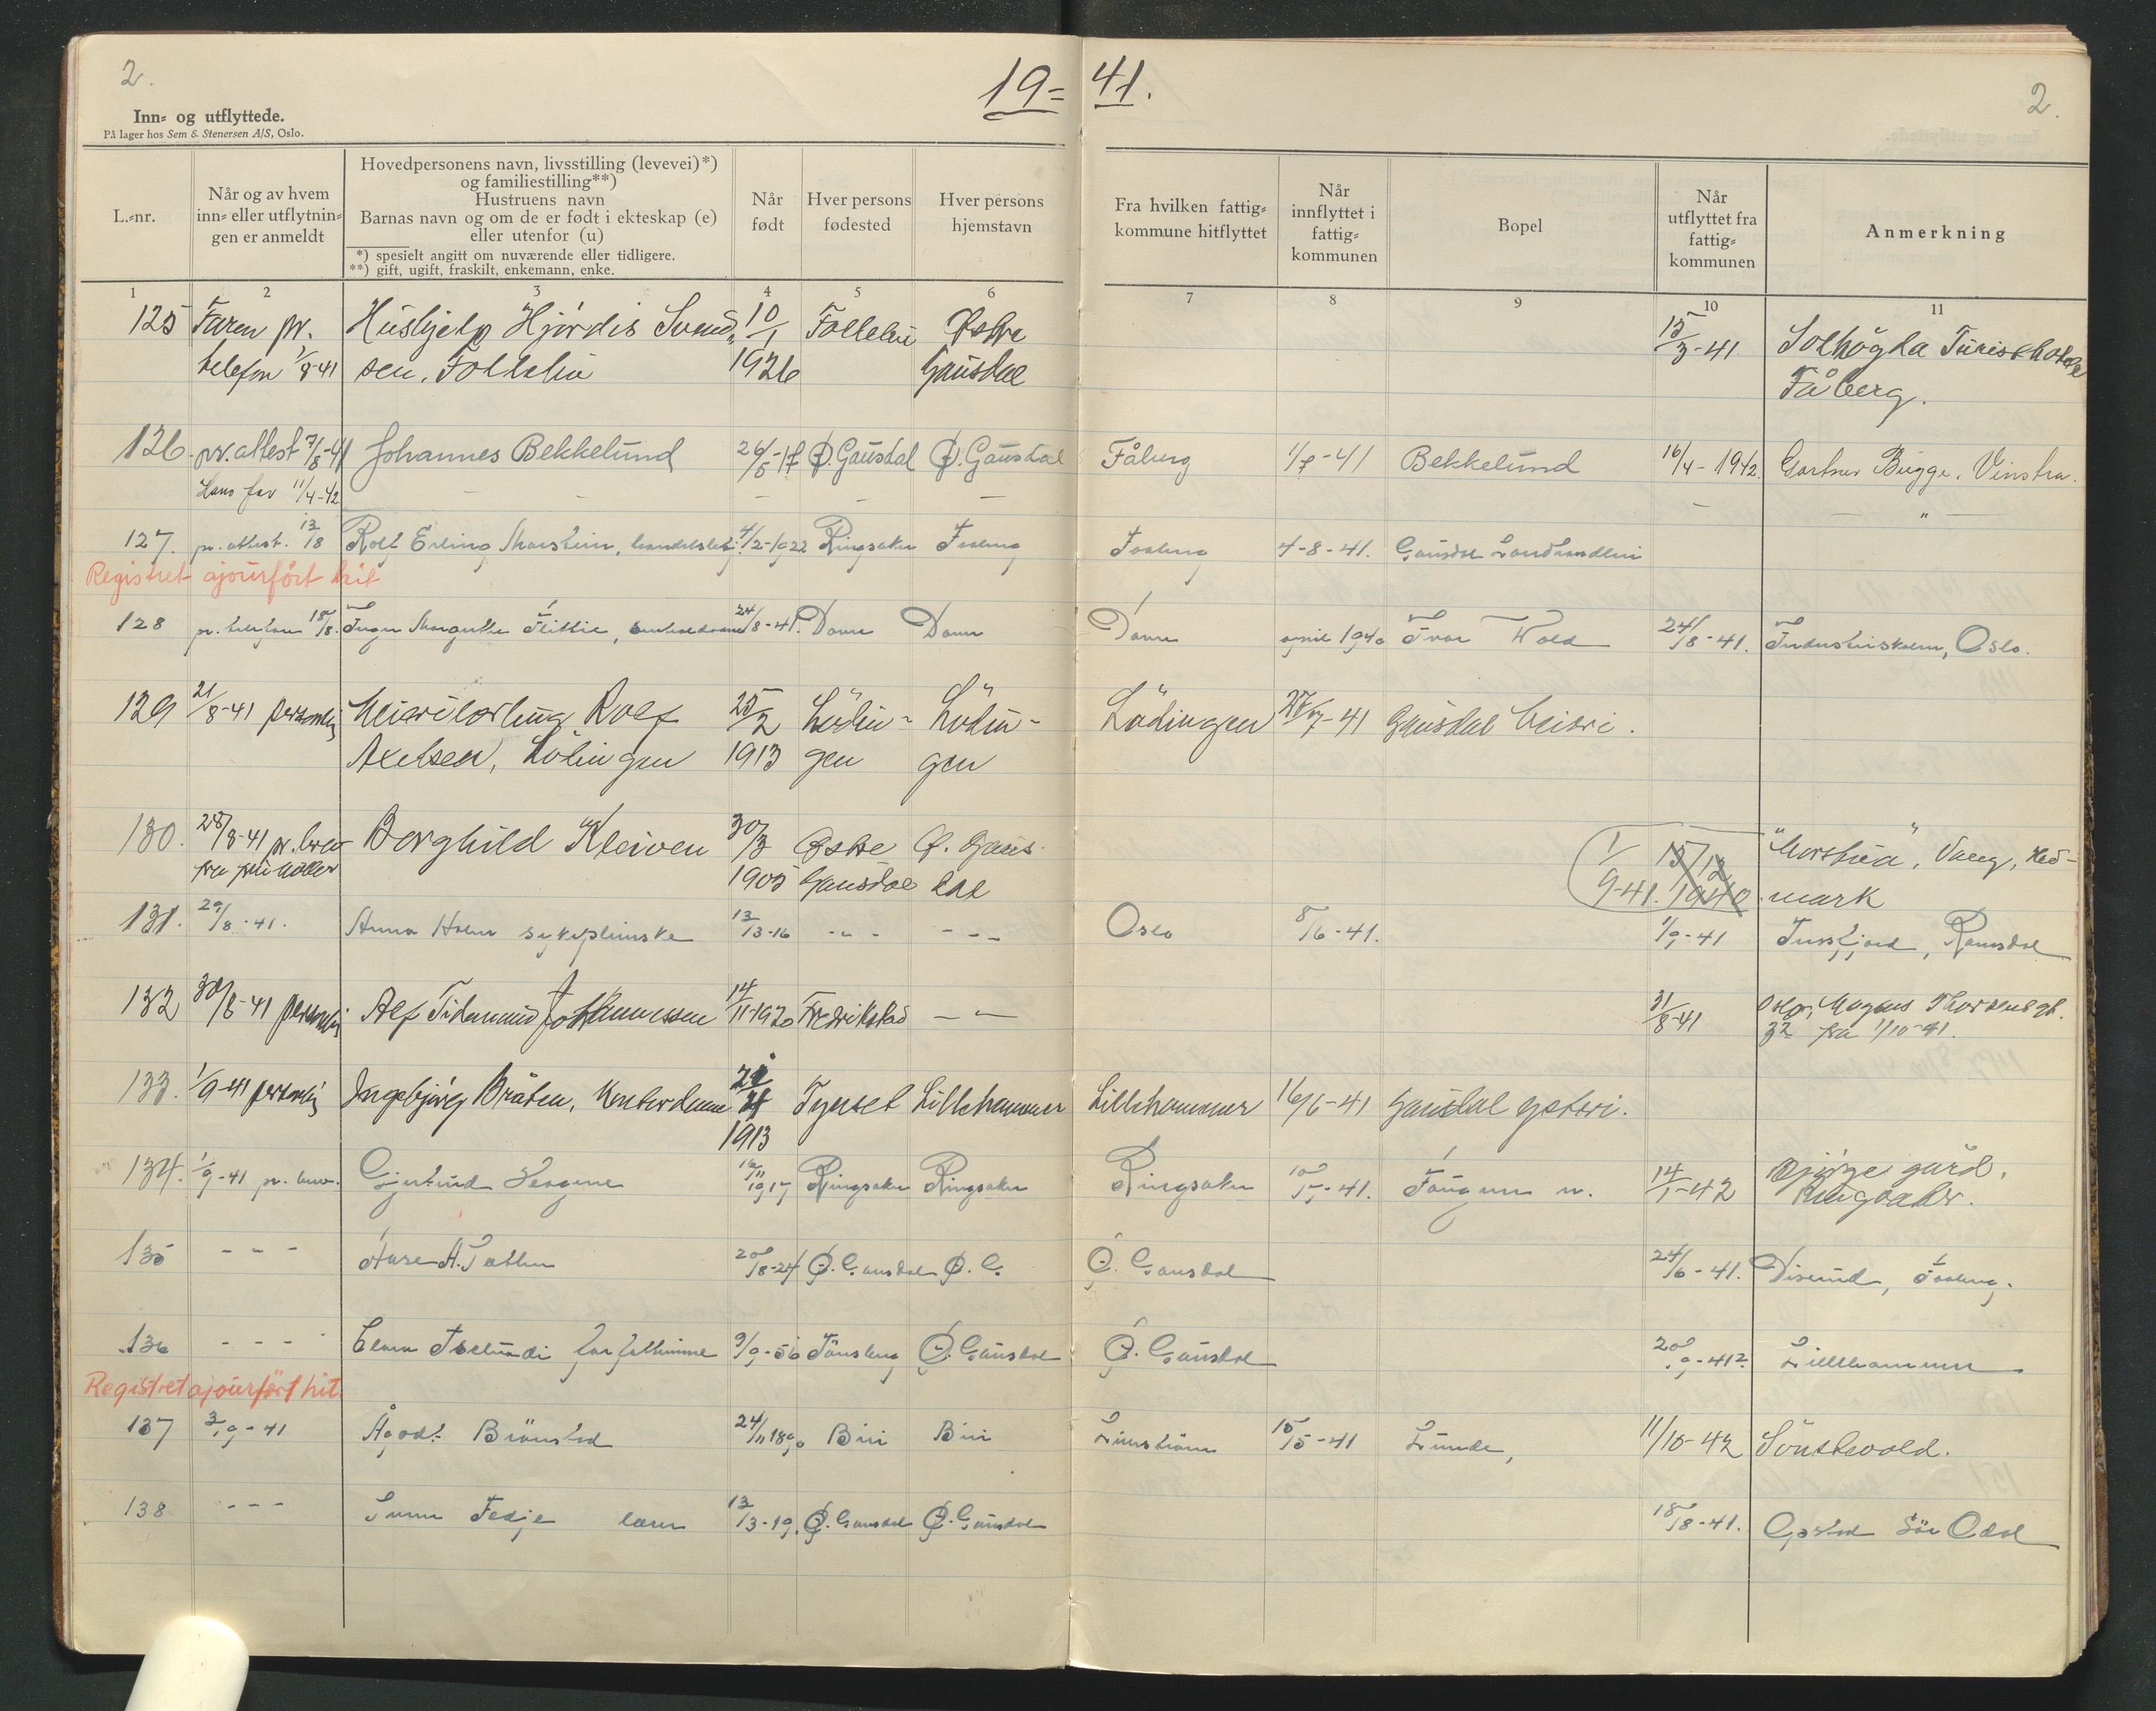 2.
19= 41.
2.
Inn= og utflyttede.
På lager hos Sem & Stenersen A/S, Oslo.
L.=nr.
Når og av hvem
inn= eller utflytnin=
gen er anmeldt
Hovedpersonens navn, livsstilling (levevei)*)
og familiestilling**)
Hustruens navn
Barnas navn og om de er født i ekteskap (e)
eller utenfor (u)
*) spesielt angitt om nuværende eller tidligere.
**) gift, ugift, fraskilt, enkemann, enke.
Når
født
Hver persons
fødested
Hver persons
hjemstavn
Fra hvilken fattig=
kommune hitflyttet
Når
innflyttet i
fattig=
kommunen
Bopel
Når
utflyttet fra
fattig=
kommunen
Anmerkning
1 2 3 4 5 6 7 8 9 10 11
125 Faren pr. Hushjelp Hjördis Svend= 10/1 Follebu Østre 15/3-41 Solhögda Turisthotell
telefon 1/8-41 sen, Follebu 1926 Gausdal Fåberg.
126. pr. attest 7/8-41 Johannes Bekkelund 26/5-17 Ø. Gausdal Ø. Gausdal Fåberg 1/7-41 Bekkelund 16/4-1942. Gartner Bugge, Vinstra.
Hans far 11/4-42 — — — — — " —
127. pr. attest. 13/8 Rolf Erling 4/2-1922 Ringsaker Faaberg Faaberg 4-8-41. Gausdal Landhandleri
Registret ajourført hit
128 pr. telefon 18/8. Inger Margrethe 24/8-41. Dovre Dovre Dovre april 1940 Ivar Wold 24/8-41. Industriskolen, Oslo.
129 21/8-41 personlig Meierilærling Rolf 25/2 Lödin- Lödin- Lödingen -41 Gausdal Meieri.
Axelsen, Lödingen 1913 gen gen
130. 28/8-41 pr. brev Borghild Kleiven 30/3 Østre Ø. Gaus- 1/ 15/12 "Morstua", Vang, Hed-
fra 1905 Gausdal dal 9-41. 1940. mark
131. 29/8-41. Anna Holm sykepleierske 13/3-16 - " - - - - Oslo 8/6-41. 1/9-41 Romsdal
132 30/8-41 personlig Alf Tidemand Johannessen 14/11-1920 Fredrikstad — " — 31/8-41 Oslo, Magnus Thorsens gt.
32 fra 1/10-41.
133. 1/9-41 personlig Ingebjörg Bråten, Kontordame 21/4 Tynset Lillehammer Lillehammer 16/6-41 Gausdal ysteri.
1913
134. 1/9-41 pr. brev. Gjertrud 16/11 1917 Ringsaker Ringsaker Ringsaker -41. n. 14/1-42 gård,
Ringsaker.
135 - " - Aase A. 20/8-24 Ø. Gausdal Ø. G. Ø. Gausdal 24/6-41. Faaberg.
136 - - - 9/9-56 Tönsberg Ø. Gausdal Ø. Gausdal 20/9-41?. Lillehammer
Registret ajourført hit.
137 3/9-41 Ågodt Brönstad 24/11 1890 Biri Biri 15/5-41 Lunde, 11/10-42 Sönstevold.
138 - - - Fedje 13/3-19. Ø. Gausdal Ø. Gausdal 18/8-41. Opstad Sör Odal